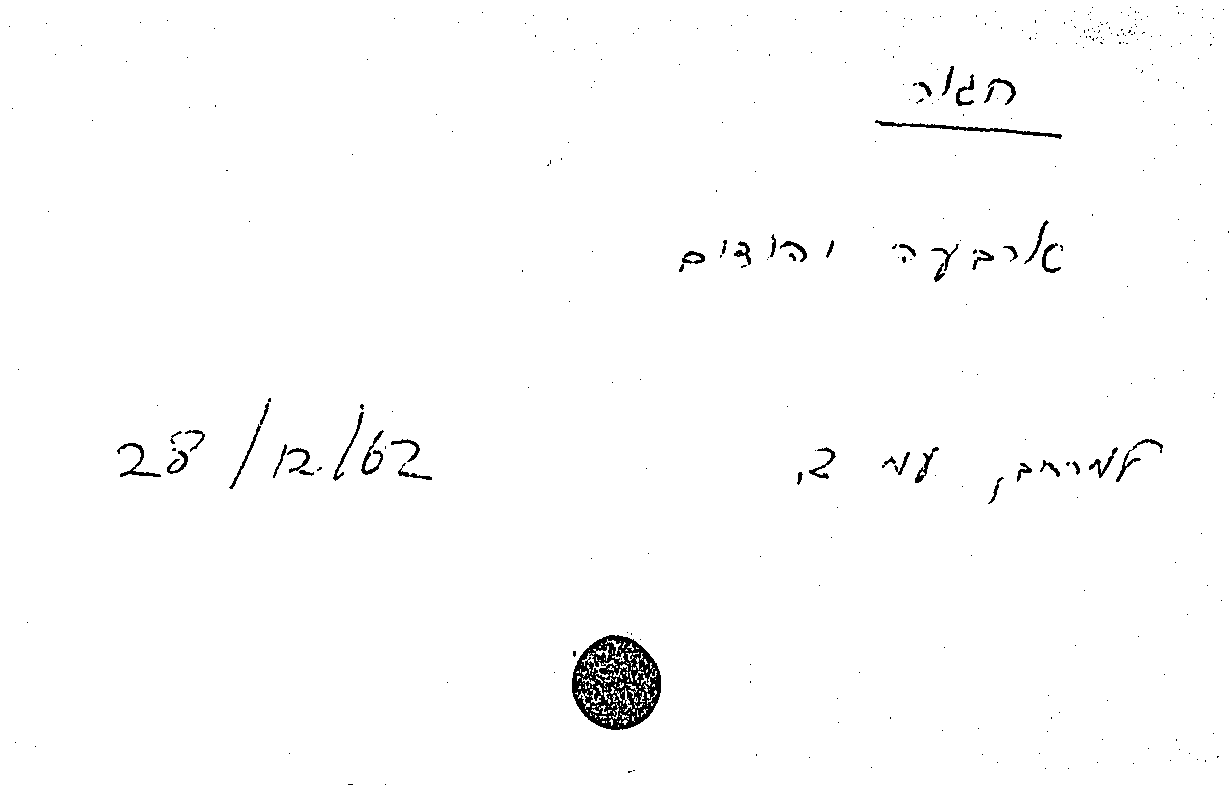 חגיה
ארבעה יהודים
למרחב, עמ 2, 28/12/62